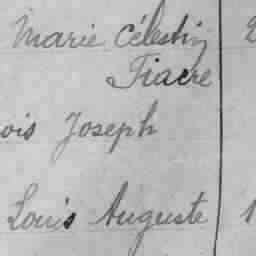 Marie Célestin
Fiacre
ois Joseph
Louis Auguste